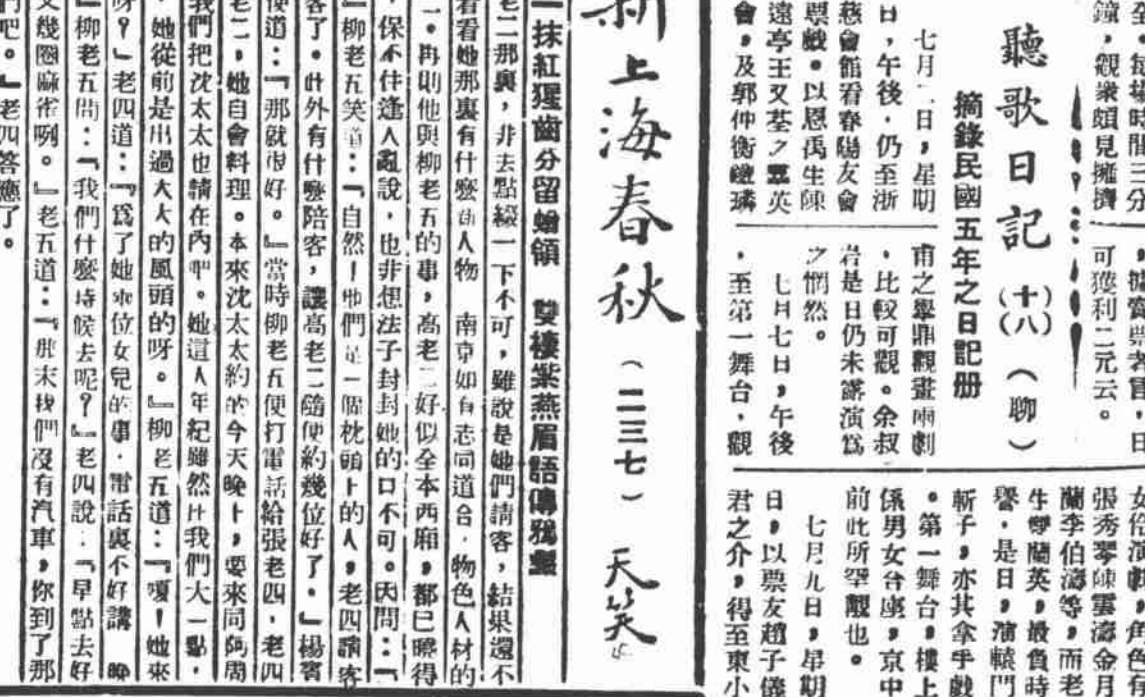 鐘，觀衆頗見擁擠
可獲利二元云。
聽歌日記（十八）（聊）
摘錄民國五年之日記册
七月二日，星期
日，午後，仍至浙
慈會館看春陽友會
票戲。以恩禹生陳
遠亭王又荃之羣英
會，及郭仲衡鐵璘
甫之舉鼎觀畫兩劇
，比較可觀。余叔
岩是日仍未露演爲
之惘然。
七月七日，午後
，至第一舞台，觀
女伶演戲，角色有
張秀琴陳雲濤金月
蘭李伯濤等，而老
生 蘭英，最負時
譽，是日，演轅門
斬子，亦其拿手戲
。第一舞台，樓上
係男女合座，京中
前此所罕覯也。
七月九日，星期
日，以票友趙子儀
君之介，得至東小
新上海春秋（二三七）天笑
一抹紅猩齒分留蝤領　雙棲紫燕眉語傳鴉
老二那裏，非去點綴一下不可，雖說是她們請客，結果還不
看看她那裏有什麼 人物　南京如有志同道合，物色人材的
一。再則他與柳老五的事，高老二好似全本西廂，都已瞭得
，保不住逢人亂說，也非想法子封封她的口不可。因問：『
『柳老五笑道：『自然！他們是一個枕頭上的人，老四請客
客了。此外有什麼陪客，讓高老二隨便約幾位好了。』楊賓
便道：『那就很好。』當時柳老五便打電話給張老四，老四
老二，她自會料理。本來沈太太約的今天晚上，要來同阿周
我們把沈太太也請在內吧。她這人年紀雖然比我們大一點，
，她從前是出過大大的風頭的呀。』柳老五道：『嗄！她來
呀？』老四道：『爲了她 位女兒的事，電話裏不好講　晚
』柳老五問：『我們什麼時候去呢？』老四說：『早點去好
叉幾圈麻雀咧。』老五道：『那末我們沒有汽車，你到了那
們吧。』老四答應了。